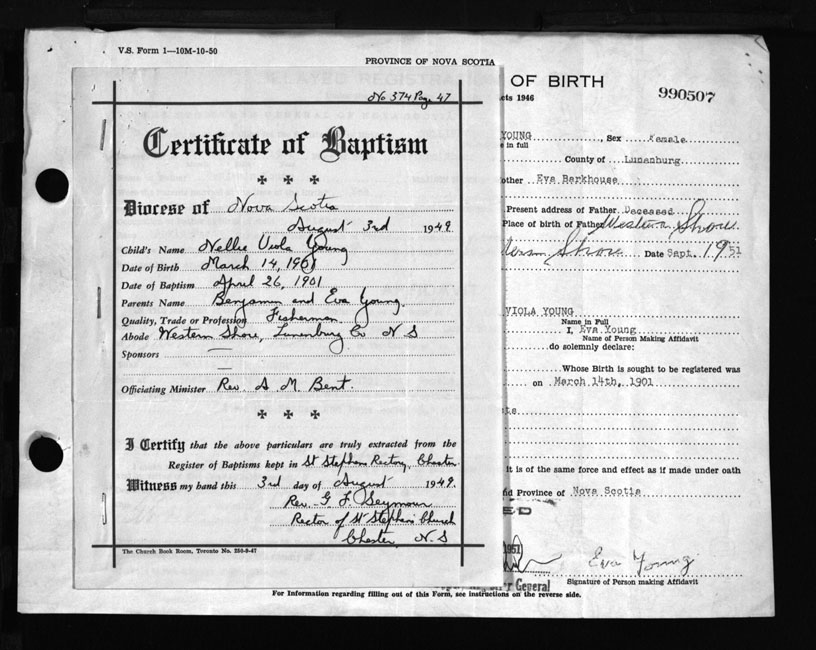 V.S. Form 1—10M-10-50
PROVINCE OF NOVA SCOTIA
No 374 Page 47
Certificate of Baptism
Diocese of Nova Scotia
August 3rd 1949
Child's Name Nellie Viola Young
Date of Birth March 14, 1901
Date of Baptism April 26, 1901
Parents Name Benjamin and Eva Young.
Quality, Trade or Profession Fisherman
Abode Western Shore, Lunenburg Co N S
Sponsors
Officiating Minister Rev. A. M. Bent.
I Certify that the above particulars are truly extracted from the
Register of Baptisms kept in St Stephens Rectory, Chester
Witness my hand this 3rd day of August 1949.
Rev. G. F. Seymour
Rector of St Stephen's Church
Chester, N.S
The Church Book Room, Toronto No. 256-9-47
OF BIRTH
Acts 1946
990507
YOUNG, Sex Female
e in full
County of Lunenburg
other Eva Barkhouse
Present address of Father Deceased
Place of birth of Father Western Shore
Shore Date Sept. 1951
VIOLA YOUNG
Name in Full
I, Eva Young
Name of Person Making Affidavit
do solemnly declare:
Whose Birth is sought to be registered was
on March 14th, 1901
it is of the same force and effect as if made under oath
nd Province of Nova Scotia
ED
1951
Eva Young
General
Signature of Person making Affidavit
For Information regarding filling out of this Form, see instructions on the reverse side.